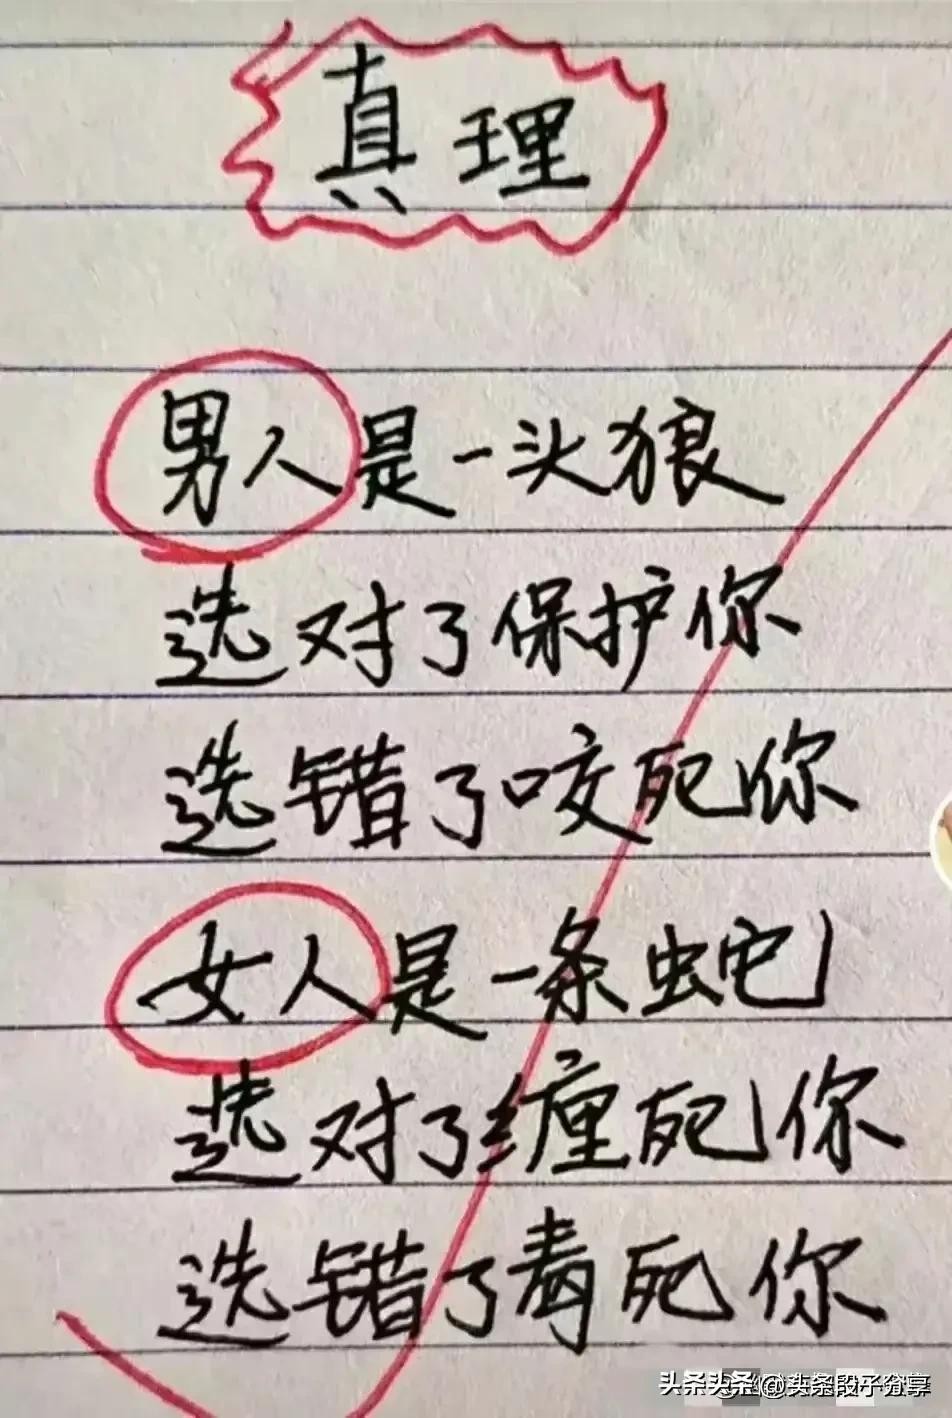 真理
男人是一头狼
选对了保护你
选错了咬死你
女人是一条蛇
选对了缠死你
选错了毒死你
头条 @头条段子分享